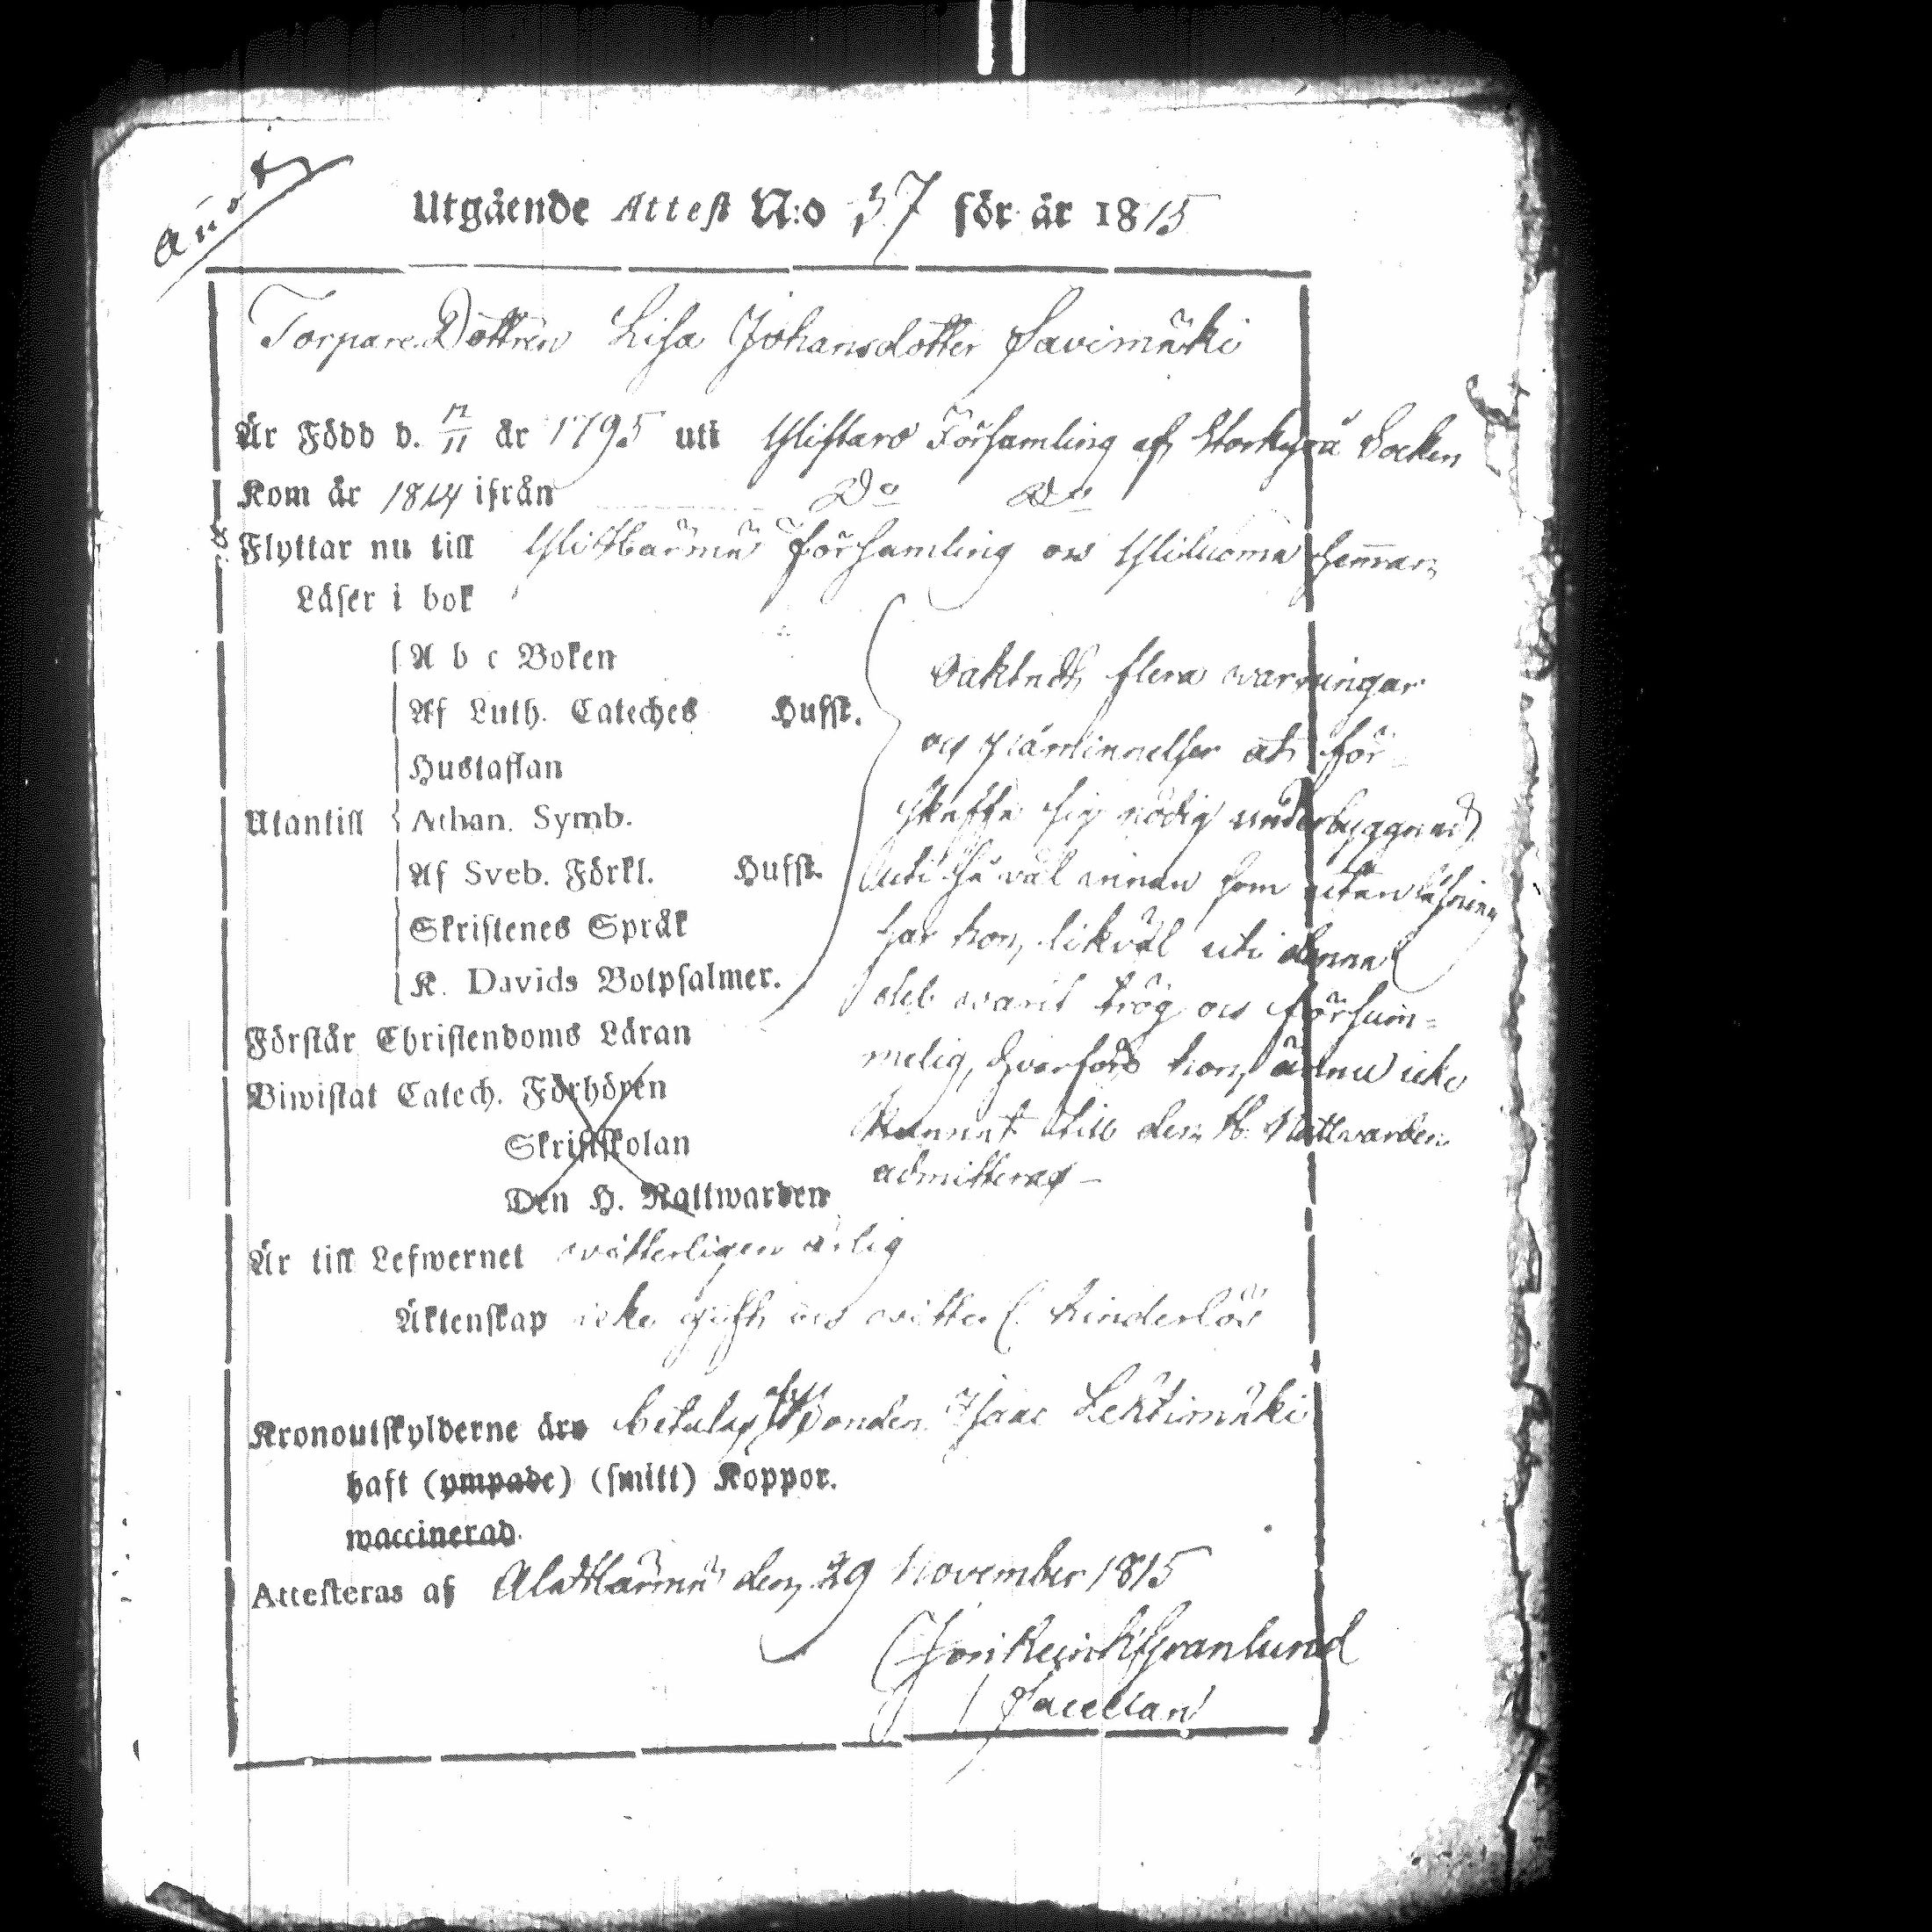 Utgående Attest N:o 37 för år 1815
Torpare Dottren Lisa Johansdotter Savimäki
Är Född d. 12/11 år 1795 uti Ylistaro Församling af Storkyrå Socken
Kom år 1814 ifrån Do Do
Flyttar nu till Yli Härmä församling och Yliluoma heman
Läser i bok
A b c Boken
Af Luth. Cateches Hufst.
Hustaflan
Utantill Athan. Symb.
Af Sveb. Förkl. Hufst.
Skriftenes Språk
K. Davids Botpsalmer.
oaktadt flera warningar
och påminnelser at för-
skaffa sig nödig underbyggnad
uti så väl innan som utan läsning
har hon likväl uti denna
del warit trög och försum-
melig, hvarföre hon ännu icke
kunnat till den H. Nattvarden
admitteras -
Förstår Christendoms Läran
Biwistat Catech. Förhören
Skriftskolan
Den H. Nattwarden
Är till Lefwernet witterligen ärlig
Äktenskap icke gift och witterl. hinderlös
Kronoutskylderne äro betalas af Bonden Isaac Lehtimäki
haft (ympade) (smitt) Koppor.
waccinerad.
Attesteras af Ala Härmä den 29 November 1815
Granlund
Sacellan